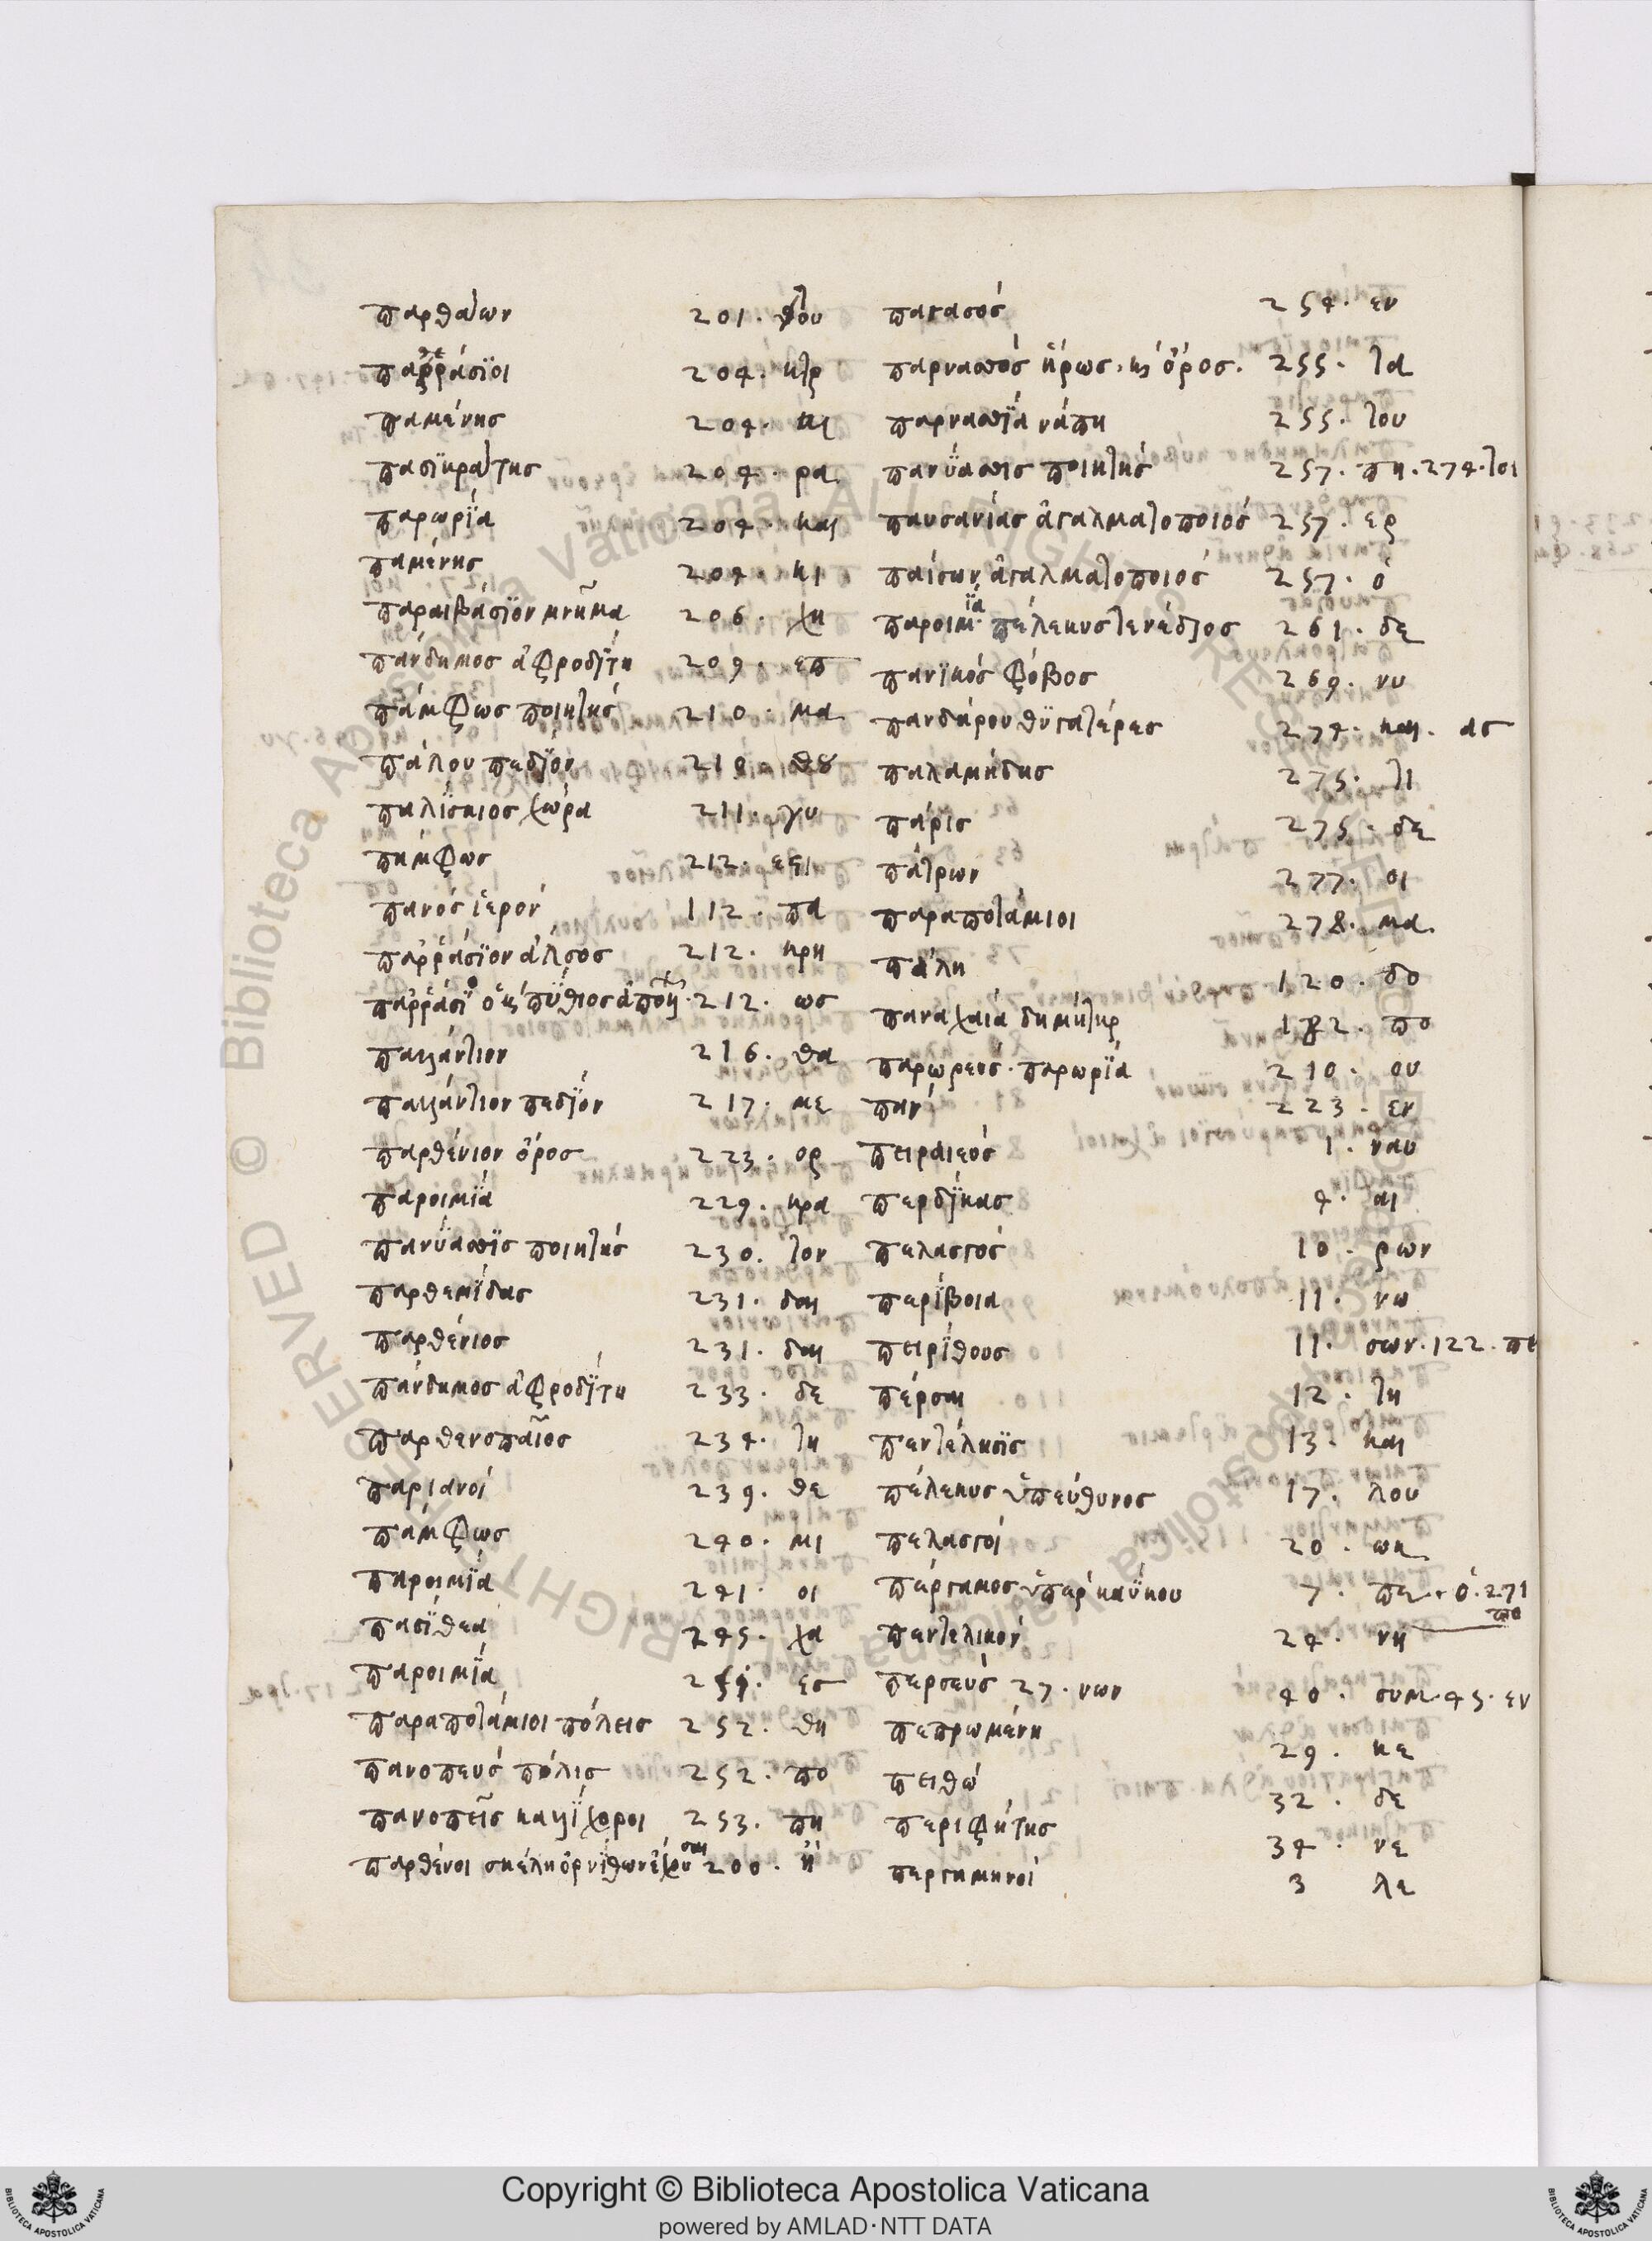 παρθάων 201. που
παρράσϊοι 204. κτρ
παμένης 204. κι
πασϊκράτης 204. ρα
παρωρϊά 204. και
παμένης 204. κι
παραιβάσϊον μνῆμα 206. χη
πάνδημος ἀφροδΐτη 209. επ
πάμφως ποιητής 210. μα
πάλου πεδΐον 210. θυ
παλΐσκιος χώρα 211. γυ
πάμφως 212. εξι
πανός ἱερόν 112. πα
παρράσϊον ἄλσος 212. κρη
212. ως
παλλάντιον 216. θα
παλλάντιον πεδΐον 217. με
παρθένιον ὄρος 223. ορ
παροιμΐα 229. κρα
πανΰασϊς ποιητής 230. τον
παρθεμΐδας 231. δαι
παρθένιος 231. δαι
πάνδημος ἀφροδΐτη 233. δε
παρθενοπαῖος 234. τη
παριανοί 239. θε
πάμφως 240. μι
παροιμΐα 241. οι
πασΐθεα 245. χα
παροιμΐα 251. εσ
παραποτάμιοι πόλεις 252. θη
πανοπεύς πόλις 252. πο
πανοπεῖς καλλΐχοροι 253. πη
παρθένοι σκέλη ὀρνΐθων ἔχουσαι 200. ἡ
παγασός 254. εν
παρνασός ἥρως. καί ὄρος. 255. τα
παρνασϊά νάπη 255. του
πανΰασις ποιητής 257. πη. 274. τοι
παυσανίας ἀγαλματοποιός 257. ερ
παίσων ἀγαλματοποιός 257. ὁ
παροιμϊά. πέλεκυς τενέδιος 261. δε
πανϊκός φόβος 269. νυ
πανδάρου θϋγατέρες 274. και. ασ
παλαμήδης 275. τι
πάρις 275. δε
πάτρων 277. οι
παραποτάμιοι 278. μα
πάλη 120. δο
παναχαιά δημήτηρ 182. πο
παρωρεύς. παρωρϊά 210. ου
πάν 223. εν
πειραιεύς 1. ναυ
περδΐκας 4. αι
πελασγός 10. ρων
περΐβοια 11. νω
πειρΐθους 11. σων. 122. πε
πέρσαι 12. τη
πεντέλησϊς 13. και
πέλεκυς ὑπεύθυνος 17. λου
πελασγοί 20. ωκ
πέργαμος ὑπέρ καΰκου 7. πε. ὁ. 271 πο
πεντελικόν 24. νη
περσεύς 27. νων 40. συμ. 45. εν
πεπρωμένη 29. κε
πειθώ 32. δε
περιφήτης 34. νε
περγαμηνοί 3 λε
Copyright © Biblioteca Apostolica Vaticana
powered by AMLAD·NTT DATA